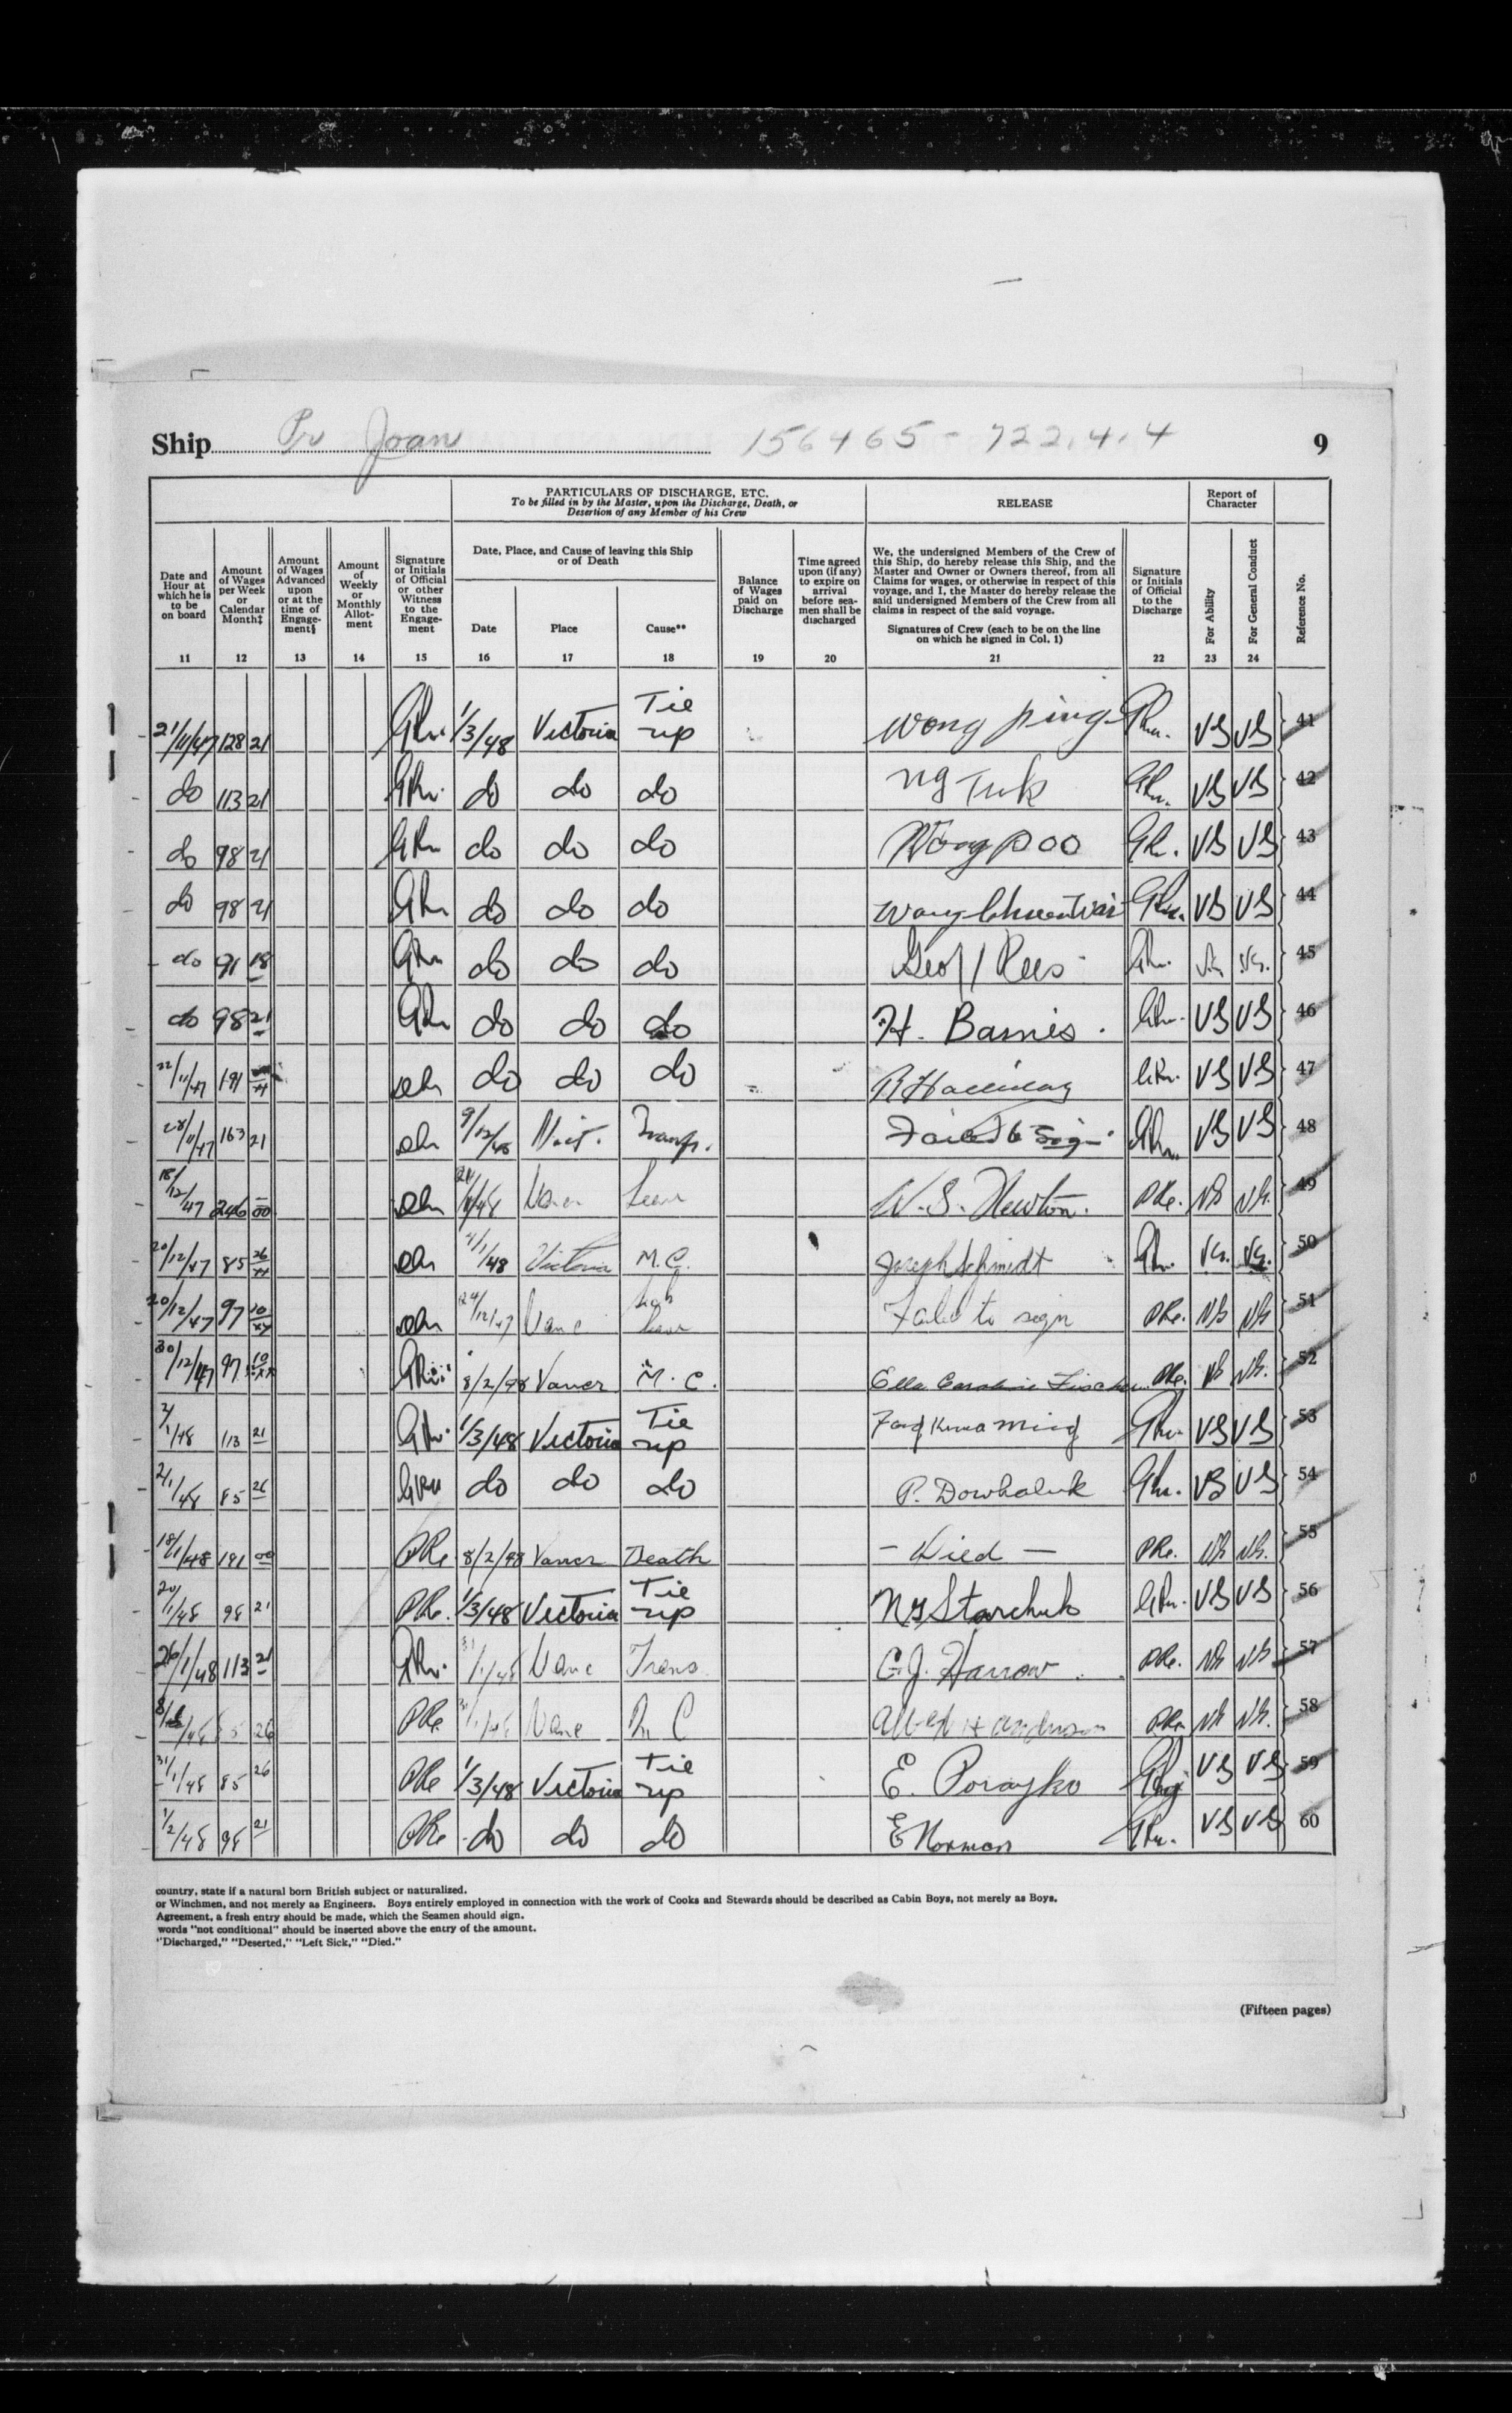 Ship Pr Joan 156465 - 722.4.4 9
PARTICULARS OF DISCHARGE, ETC.
To be filled in by the Master, upon the Discharge, Death, or
Desertion of any Member of his Crew
RELEASE
Report of
Character
Date and
Hour at
which he is
to be
on board
Amount
of Wages
per Week
or
Calendar
Month‡
Amount
of Wages
Advanced
upon
or at the
time of
Engage-
ment§
Amount
of
Weekly
or
Monthly
Allot-
ment
Signature
or Initials
of Official
or other
Witness
to the
Engage-
ment
Date, Place, and Cause of leaving this Ship
or of Death
Date Place Cause**
Balance
of Wages
paid on
Discharge
Time agreed
upon (if any)
to expire on
arrival
before sea-
men shall be
discharged
We, the undersigned Members of the Crew of
this Ship, do hereby release this Ship, and the
Master and Owner or Owners thereof, from all
Claims for wages, or otherwise in respect of this
voyage, and I, the Master do hereby release the
said undersigned Members of the Crew from all
claims in respect of the said voyage.
Signatures of Crew (each to be on the line
on which he signed in Col. 1)
Signature
or Initials
of Official
to the
Discharge
For Ability
For General Conduct
Reference No.
11 12 13 14 15 16 17 18 19 20 21 22 23 24
21/11/47 128 21 1/3/48 Victoria Tie up Wong ping VG VG 41
do 113 21 do do do Ng Tuk VG VG 42
do 98 21 do do do Wong Poo VG VG 43
do 98 21 do do do VG VG 44
do 91 18 do do do Rees 45
do 98 21 do do do H. Barnes. VG VG 46
22/11/47 191 do do do VG VG 47
28/11/47 163 21 Vict. Transf. Failed to sign VG VG 48
18/12/47 246 00 W. S. Newton. VG VG 49
20/12/47 85 26 48 Victoria M.C. Joseph Schmidt VG. VG. 50
20/12/47 97 10 24/12/47 Vanc Failed to sign VG VG 51
30/12/47 97 10 8/2/48 Vancr M.C. Ella Caroline Fischer VG VG. 52
2/1/48 113 21 1/3/48 Victoria Tie up VG VG 53
2/1/48 85 26 do do do P. Dowhaluk VG VG 54
18/1/48 191 00 8/2/48 Vancr Death - Died - VG VG. 55
20/1/48 98 21 1/3/48 Victoria Tie up Starchuk VG VG 56
26/1/48 113 21 31/1/48 Vanc Trans. C. J. Harrow. VG VG 57
85 26 31/1/48 Vanc M C Albert H Anderson VG VG. 58
31/1/48 85 26 1/3/48 Victoria Tie up E. Porayko VG VG 59
1/2/48 98 21 do do do E Norman VG VG 60
country, state if a natural born British subject or naturalized.
or Winchmen, and not merely as Engineers. Boys entirely employed in connection with the work of Cooks and Stewards should be described as Cabin Boys, not merely as Boys.
Agreement, a fresh entry should be made, which the Seamen should sign.
words "not conditional" should be inserted above the entry of the amount.
"Discharged," "Deserted," "Left Sick," "Died."
(Fifteen pages)